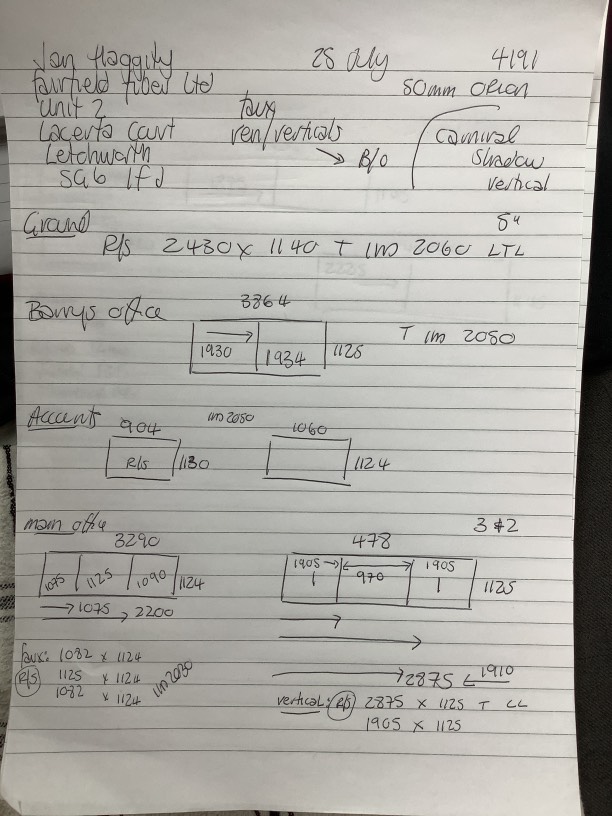 Jan Haggity 25 July 4191
fairfield fiber Ltd 50mm Orion
Unit 2 faux
Lacerta Court ren/verticals Carnival
Letchworth → B/O Shadow
SG6 1fJ vertical
Grand 5"
R/s 2430 x 1140 T 1m 2060 LTL
Barrys office 3864
1930 1934 1125 T 1m 2050
Accounts 904 1m 2050 1060
R/s 1130 1124
main office 3 # 2
3290 478
1075 1125 1090 1124 1905 → 970 1905 1125
→ 1075 → 2200
faux: 1082 x 1124
R/s 1125 x 1124 1m 2050
1082 x 1124
→ 2875 ← 1910
vertical: R/s 2875 x 1125 T LL
1905 x 1125